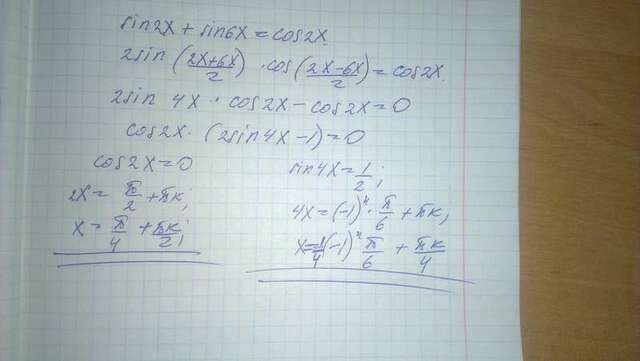 sin2x + sin6x = cos2x
2sin (2x+6x/2) · cos (2x-6x/2) = cos2x
2sin 4x · cos2x - cos2x = 0
cos2x · (2sin4x - 1) = 0
cos2x = 0
2x = π/2 + πk;
x = π/4 + πk/2;
sin4x = 1/2;
4x = (-1)ⁿ · π/6 + πk;
x = 1/4 (-1)ⁿ π/6 + πk/4